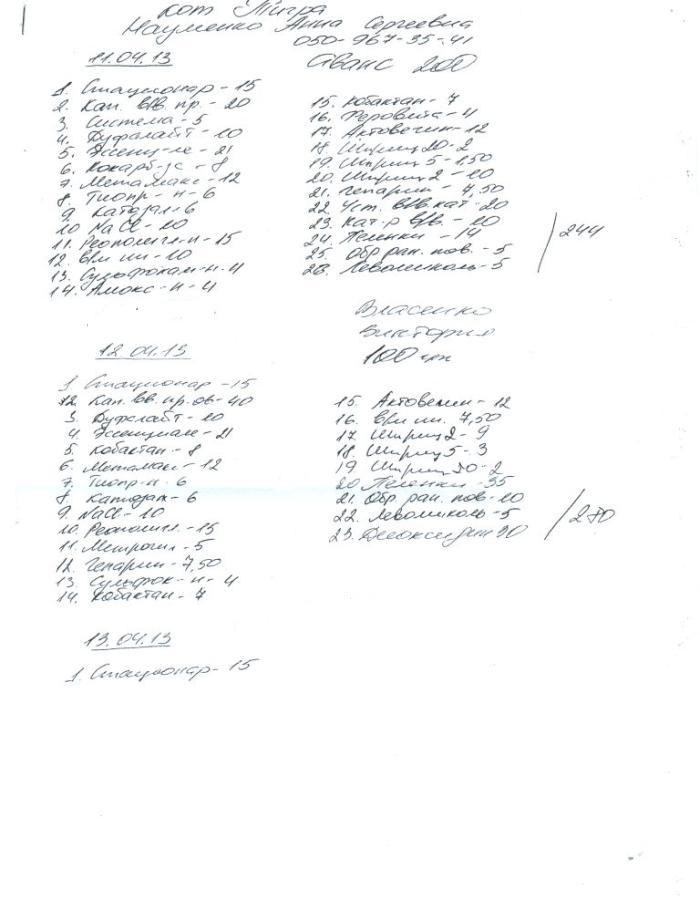 кот Тигра
Науменко Анна Сергеевна
050-967-35-41
11.04.13
Аванс 200
1. Стационар - 15
2. Кап. в/в. пр. - 20
3. Система - 5
4. Дуфалайт - 10
5. Эссенц-ле - 21
6. Кокарб-зс - 8
7. Метамакс - 12
8. Тиопр-н - 6
9. Катозал - 6
10 NaCl - 10
11. Реополигл-н - 15
12. в/м ин. - 10
13. Сульфокам-н - 4
14. Амокс-н - 4
15. Кобактан - 7
16. Феровита - 4
17. Актовегин - 12
18 Шприц 20 - 2
19. Шприц 5 - 1,50
20. Шприц 2 - 10
21. Гепарин - 4,50
22 Уст. в/в. кат - 20
23. Кат-р в/в. - 10
24. Пеленки - 14
25. Обр ран. пов. - 5
26. Левомиколь - 5
/ 244
Власенко
Виктория
100 грн
12.04.13
1. Стационар - 15
2. Кап. вв. пр. ов - 40
3. Дуфалайт - 10
4. Эссенциале - 21
5. Кобактан - 8
6. Метамакс - 12
7. Тиопр-н - 6
8. Катозал - 6
9. NaCl - 10
10. Реополигл. - 15
11. Метрогил - 5
12. Гепарин - 7,50
13. Сульфок-н - 4
14. Кобактан - 7
15. Актовегин - 12
16. в/м ин. 7,50
17. Шприц 2 - 9
18. Шприц 5 - 3
19 Шприц 20 - 2
20 Пеленки - 35
21. Обр ран. пов - 10
22. Левомиколь - 5
23. Диоксидин 20
/ 280
13.04.13
1. Стационар - 15